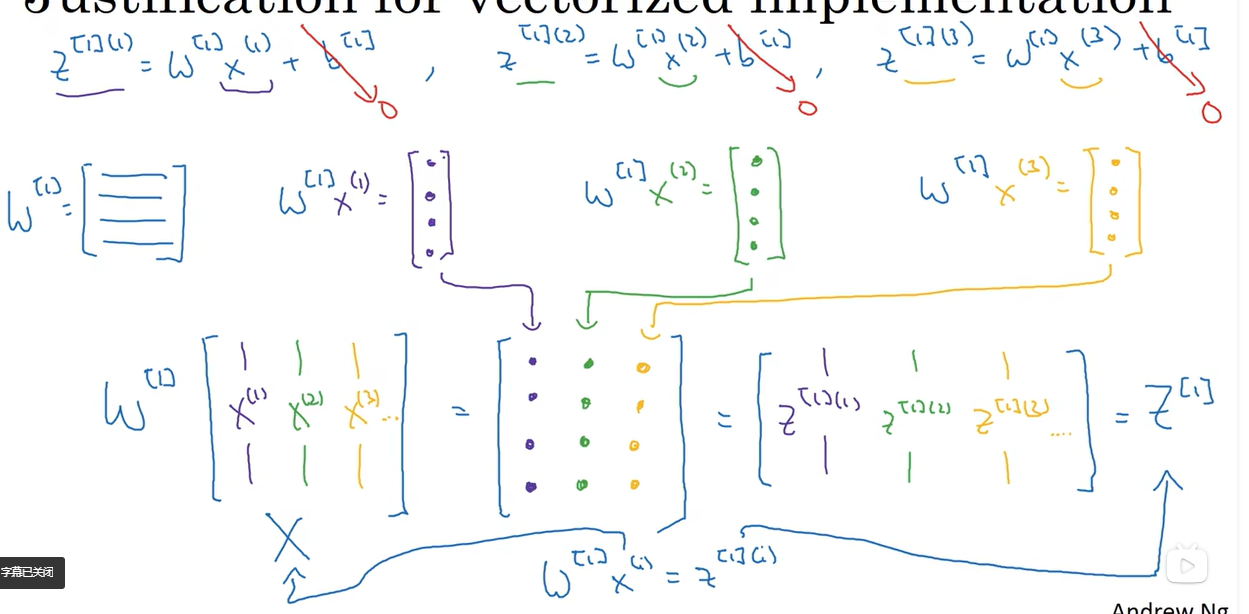 Justification for vectorized implementation
z^[1](1) = W^[1] x^(1) + b^[1] , z^[1](2) = W^[1] x^(2) + b^[1] , z^[1](3) = W^[1] x^(3) + b^[1]
0 0 0
W^[1] = [ ] W^[1] x^(1) = [ ] W^[1] x^(2) = [ ] W^[1] x^(3) = [ ]
W^[1] [ x^(1) x^(2) x^(3) ... ] = [ ] = [ z^[1](1) z^[1](2) z^[1](3) .... ] = Z^[1]
X
W^[1] x^(i) = z^[1](i)
字幕已关闭
Andrew Ng